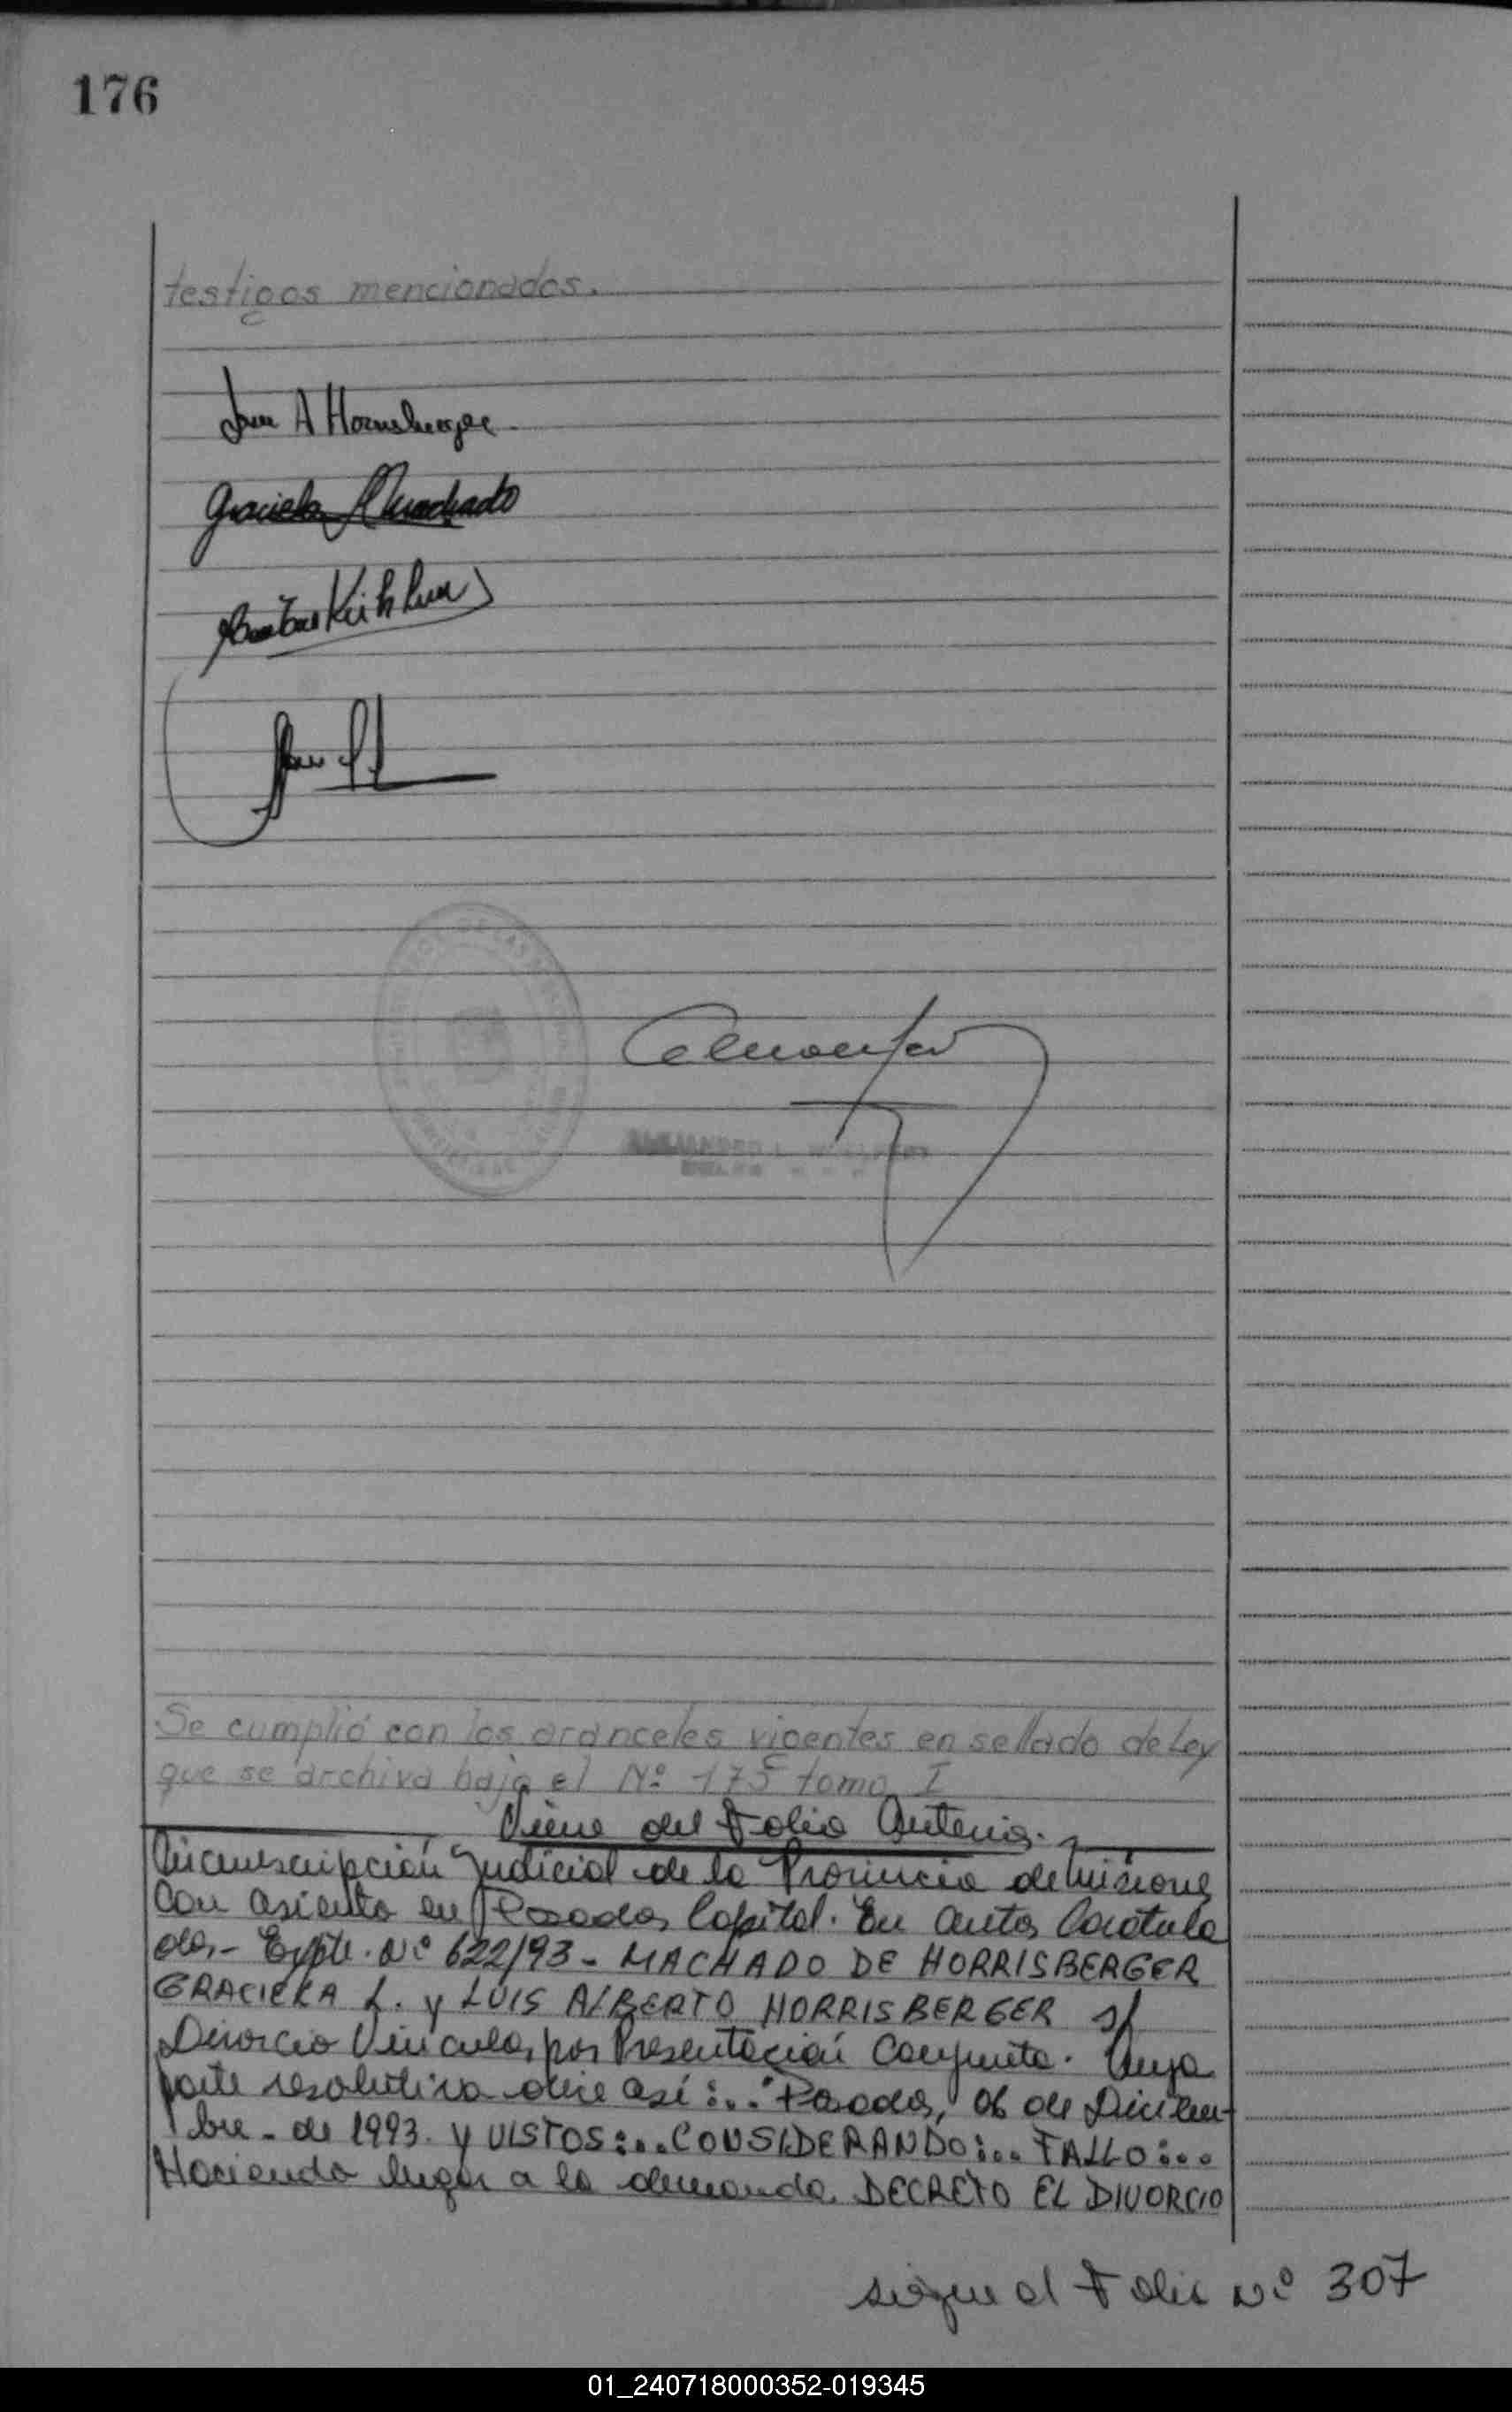 176
testigos mencionados.
A Horrisberger
Graciela Machado
Se cumplió con los aranceles vigentes en sellado de Ley
que se archiva bajo el Nº 175 tomo I
Viene del Folio Anterior.
Circunscripción Judicial de la Provincia de Misiones
Con asiento en Posadas Capital. En autos Caratula
dos.- Expte. Nº 622/93 - MACHADO DE HORRISBERGER
GRACIELA L. y LUIS ALBERTO HORRISBERGER s/
Divorcio Vincular por Presentación Conjunta. Cuya
parte resolutiva dice así:..."Posadas, 06 de Diciem-
bre - de 1993. y VISTOS:...CONSIDERANDO:... FALLO:...
Haciendo lugar a la demanda. DECRETO EL DIVORCIO
sigue al Folio Nº 307
01_240718000352-019345